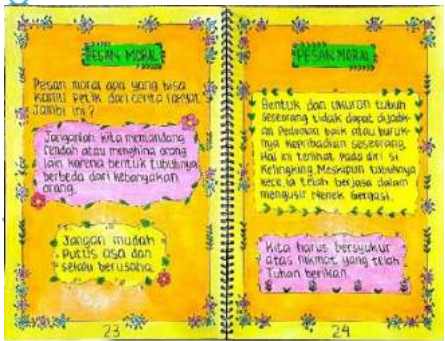 PESAN MORAL
Pesan moral apa yang bisa
kamu petik dari cerita rakyat
Jambi ini?
Janganlah kita memandang
rendah atau menghina orang
lain karena bentuk tubuhnya
berbeda dari kebanyakan
orang.
Jangan mudah
putus asa dan
selalu berusaha.
23
PESAN MORAL
Bentuk dan ukuran tubuh
seseorang tidak dapat dijadik-
an pedoman baik atau buruk-
nya kepribadian seseorang.
Hal ini terlihat pada diri si
Kelingking. Meskipun tubuhnya
kecil, ia telah berjasa dalam
mengusir Nenek Gergasi.
Kita harus bersyukur
atas nikmat yang telah
Tuhan berikan.
24